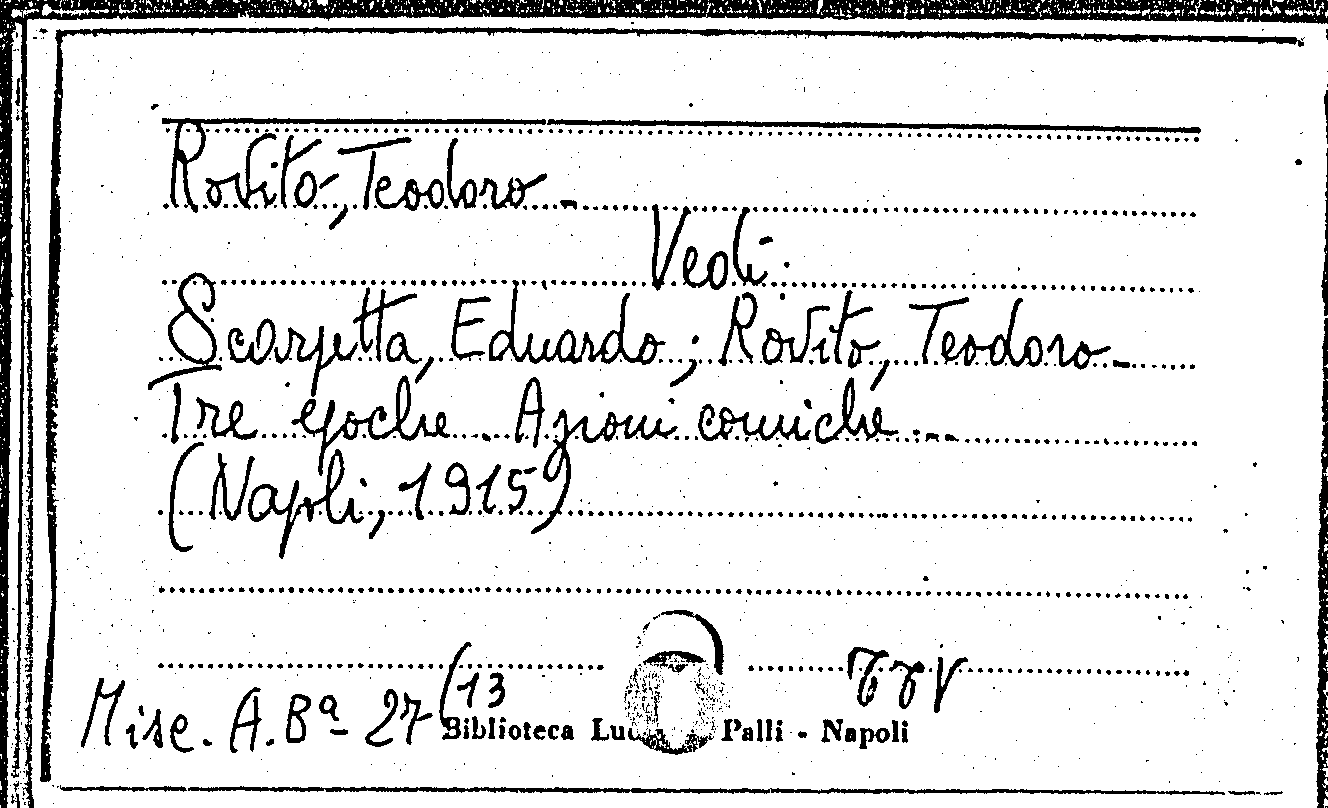 Rovito, Teodoro -
Vedi:
Scarpetta, Eduardo; Rovito, Teodoro -
Tre epoche. Azioni comiche...
(Napoli, 1915)
Misc. A. Bª 27 (13
Biblioteca Palli - Napoli